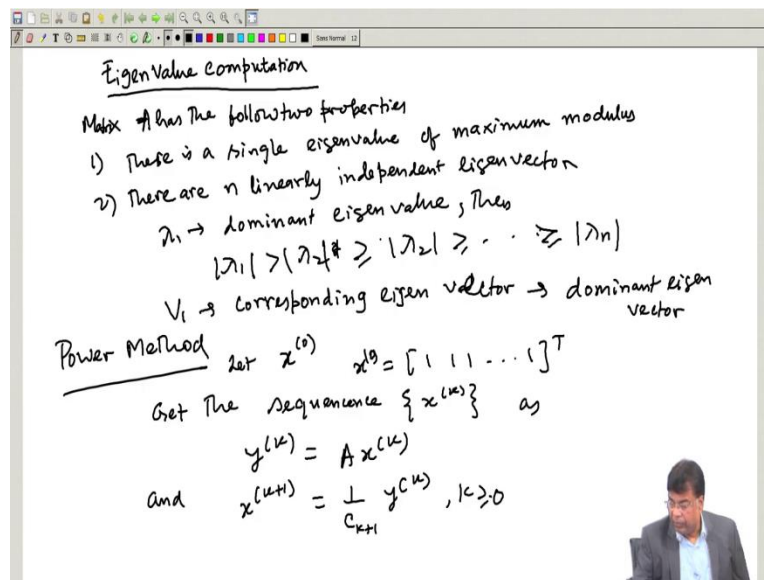 Sans Normal 12
Eigenvalue computation
Matrix A has the follow two properties
1) There is a single eigenvalue of maximum modulus
2) There are n linearly independent eigenvector
λ₁ → dominant eigenvalue, then
|λ₁| > |λ₂| ≥ |λ₂| ≥ . . . ≥ |λn|
V₁ → corresponding eigen vector → dominant eigen
vector
Power Method Let x⁽⁰⁾ x⁽⁰⁾ = [1 1 1 ... 1]ᵀ
Get the sequencence {x⁽ᵏ⁾} as
y⁽ᵏ⁾ = A x⁽ᵏ⁾
and x⁽ᵏ⁺¹⁾ = 1/Cₖ₊₁ y⁽ᵏ⁾, k ≥ 0